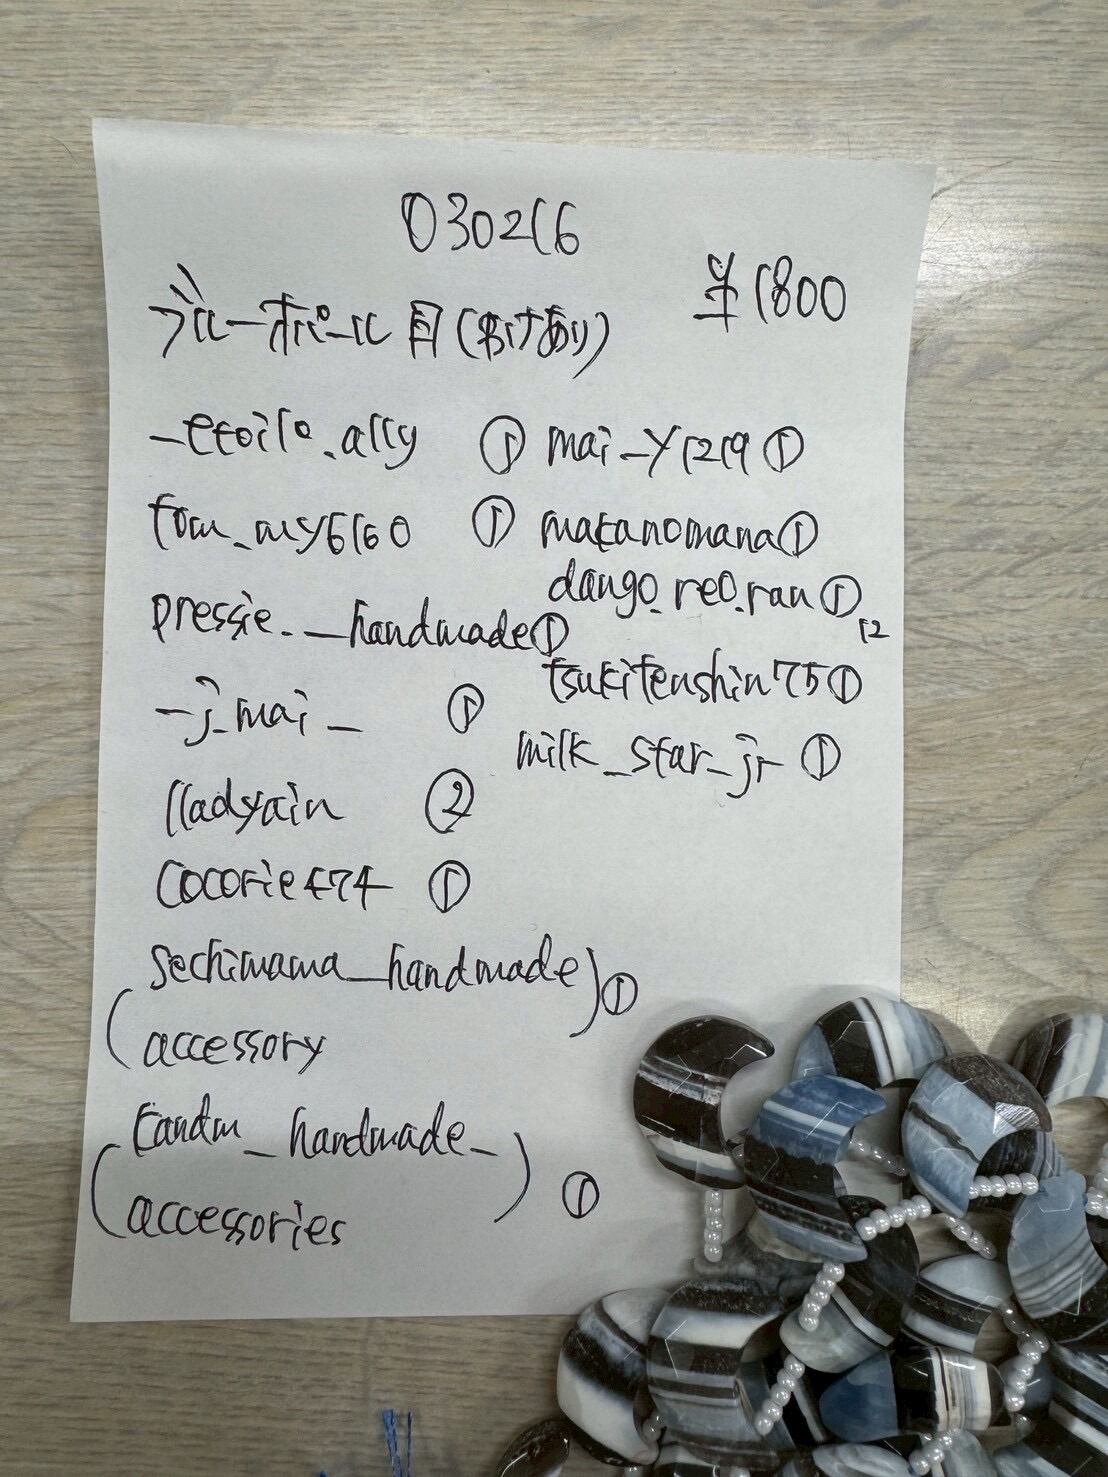 030216
ブルーオパール 月(欠けあり)
¥1800
_etoile.ally ①
tom_my6160 ①
pressie.__handmade①
_j_mai_ ①
lladyain ②
cocorie474 ①
sechimama_handmade
accessory ①
kandm_handmade_
accessories ①
mai_y1219 ①
makanomana①
dango_reo.ran①
12
tsukitenshin75①
milk_star_jr ①